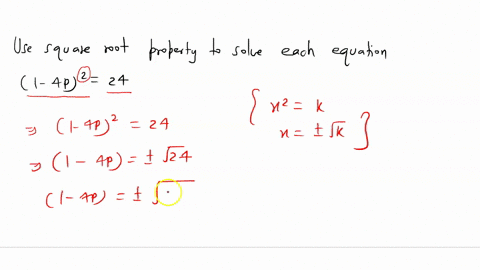 Use square root property to solve each equation
(1-4p)² = 24
{ x² = k
x = ± √k }
⇒ (1-4p)² = 24
⇒ (1-4p) = ± √24
(1-4p) = ± √